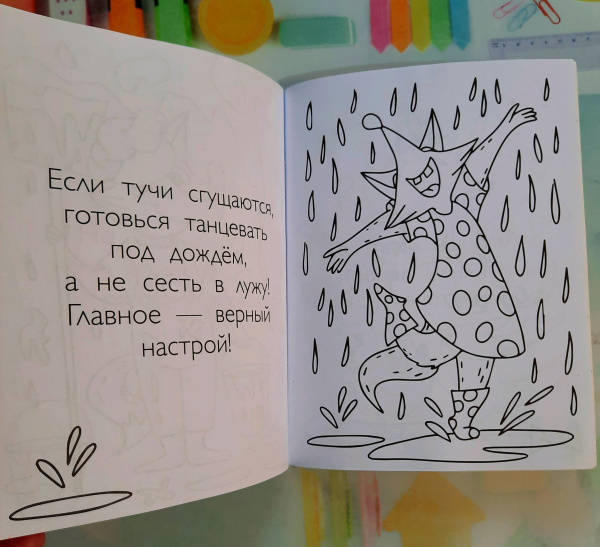 Если тучи сгущаются,
готовься танцевать
под дождём,
а не сесть в лужу!
Главное — верный
настрой!